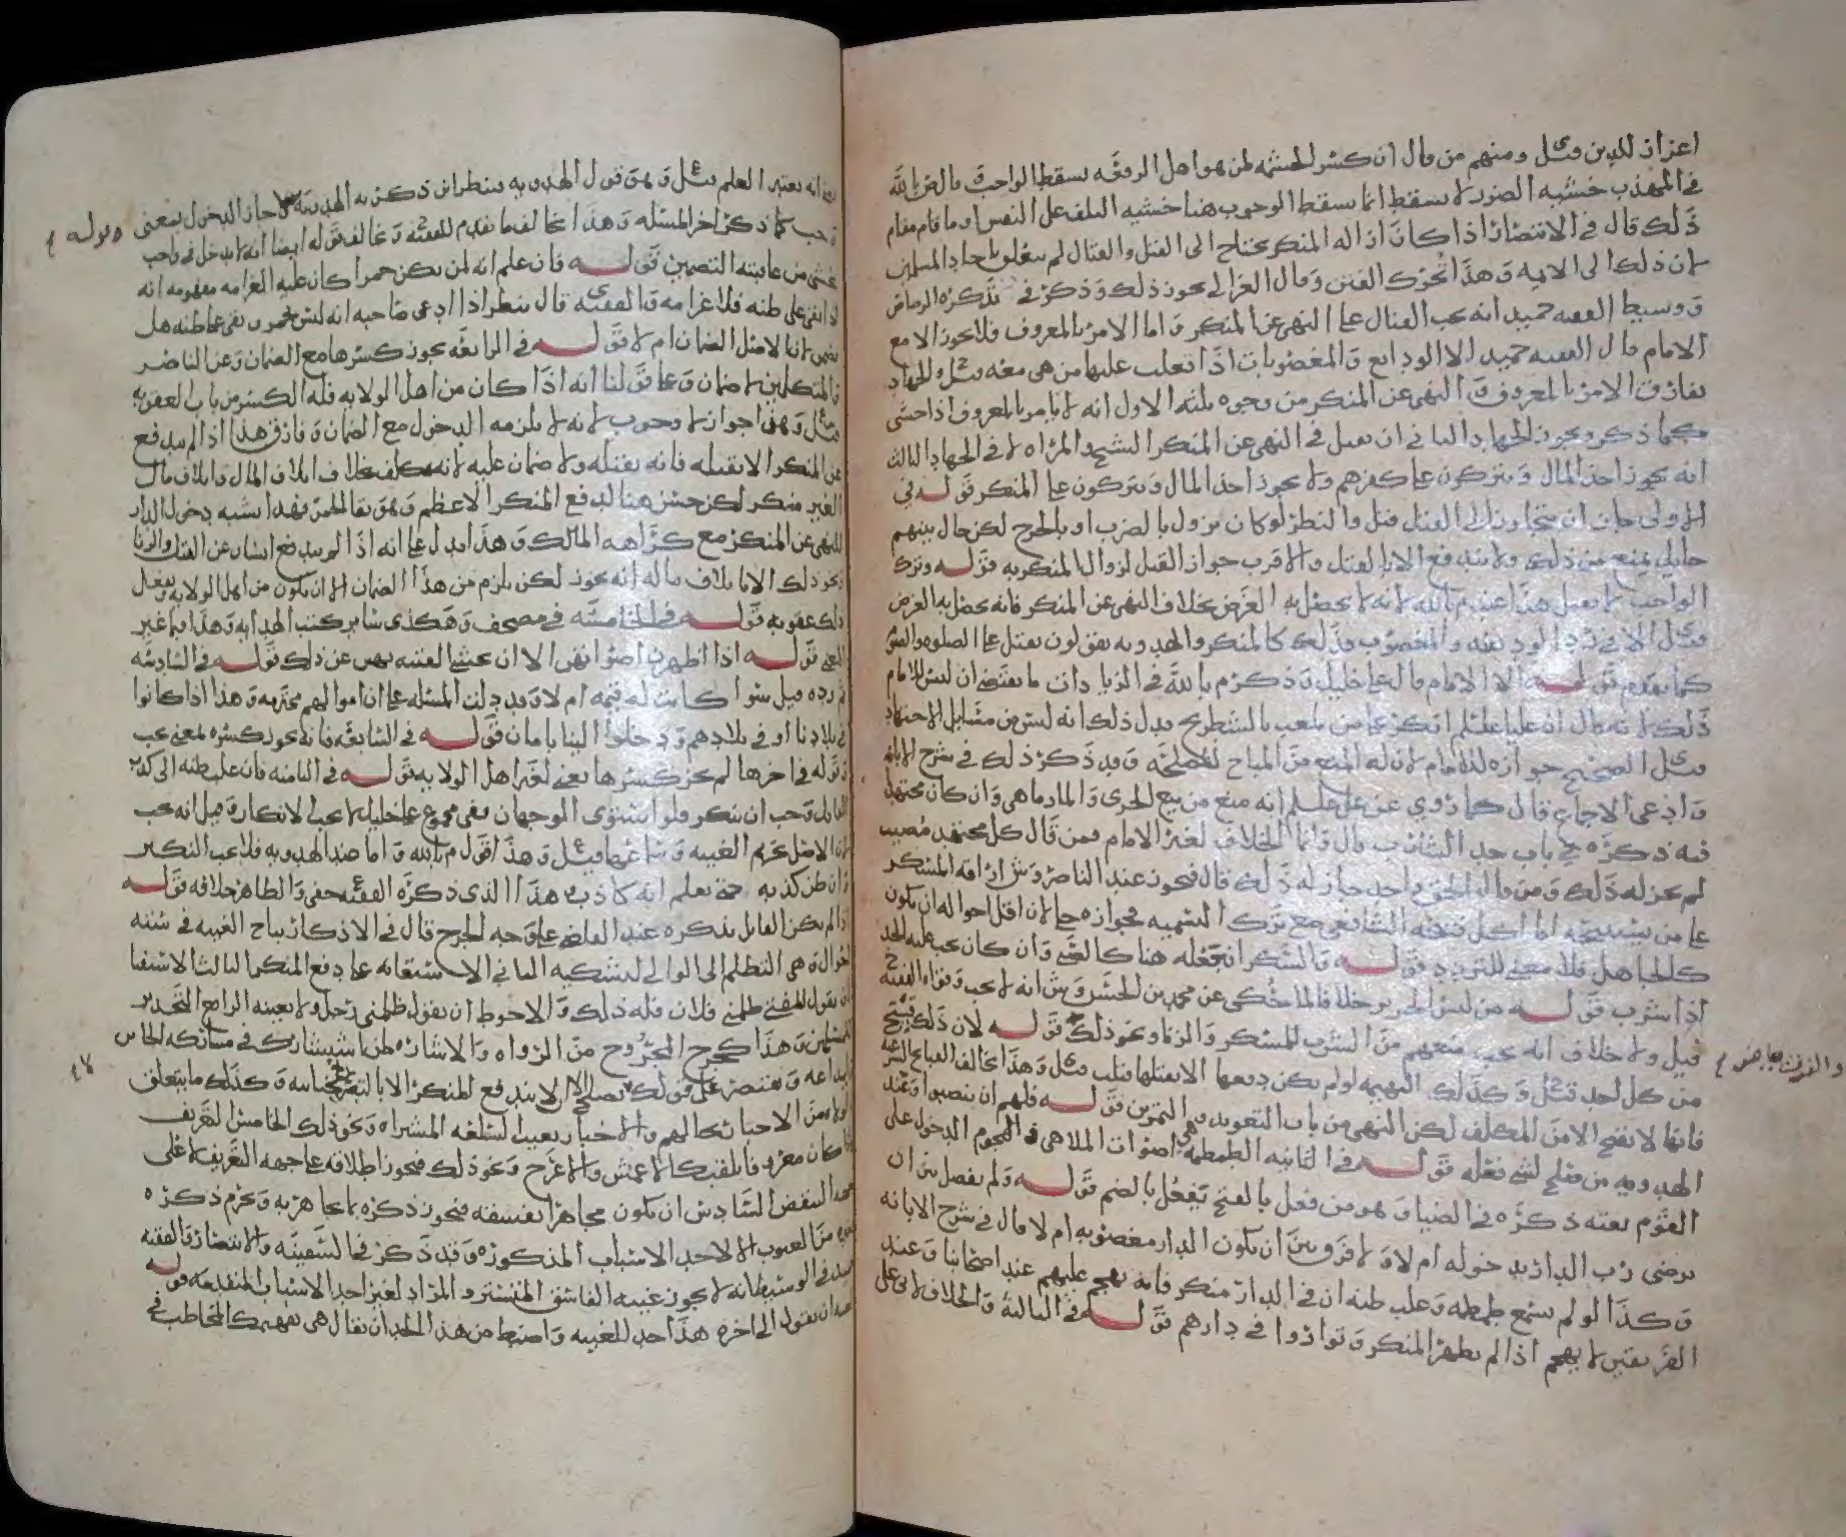 اعزاز للدين قيل ومنهم من قال ان كسر الحشمة لمن هو اهل الرفعه يسقط الواجب قال ض بالله
في المهذب خشية الضرر لا يسقط انما يسقط الوجوب هنا خشيه التلف على النفس او ما قام مقام
ذلك قال في الانتصار اذا كان ازاله المنكر يحتاج الى القتل والقتال لم يتعلق باحاد المسلمين
لان ذلك الى الايمه وهذا تحرك الفتن وقال الغزالي يجوز ذلك وذكر في تذكره الرصاص
ووسيط الفقيه حميد انه يجب القتال على النهي عن المنكر واما الامر بالمعروف فلا يجوز الا مع
الامام قال الفقيه حميد الا الودايع والمغصوبات اذا تغلب عليها من هي معه قيل والجهاد
يفارق الامر بالمعروف والنهي عن المنكر من وجوه ثلثه الاول انه لا يامر بالمعروف اذا خشي
كما ذكر ويجوز الجهاد الثاني ان يقبل في النهي عن المنكر الشيخ والمراه لا في الجهاد الثالث
انه يجوز اخذ المال ويتركون على كفرهم ولا يجوز اخذ المال ويتركون على المنكر قوله في
الاولى جاز ان يتجاوز الى القتل قيل والنظر لو كان يزول بالضرب او بالجرح لكن حال بينهم
حايل يمنع من ذلك ولا يندفع الا بالقتل والاقرب جواز القتل لزوال المنكر به قوله وترك
الواجب لا يقبل هذا عند م بالله لانه لا يحصل به الغرض بخلاف النهي عن المنكر فانه يحصل به الغرض
قيل الا في رد الوديعه والمغصوب فذلك كالمنكر والهدويه يقولون يقتل على الصلوه والصوم
كما تقدم قوله الا الامام قال علي خليل وذكر م بالله في الزيادات ما يقتضي ان ليس للامام
ذلك لانه قال ان عليا عليلم انكر على من يلعب بالشطرنج فدل ذلك انه ليس من مسايل الاجتهاد
قيل الصحيح جوازه للامام لان له المنع من المباح لمصلحه وقد ذكر ذلك في شرح الابانه
وادعى الاجماع قال كما روي عن علي عليلم انه منع من بيع الجري والمارماهي وان كان مجتهدا
فيه ذكره في باب حد الشارب قال وانما الخلاف لغير الامام فمن قال كل مجتهد مصيب
لم يجز له ذلك ومن قال الحق واحد جاز له ذلك قال فيجوز عند الناصر وش اراقه المسكر
على من يستبيحه اما اكل ذبيحه الشافعي مع ترك التسميه فجوازه جلي لان اقل احواله ان يكون
كالجاهل فلا معنى للتردد قوله والسكر ان جعله هنا كالشي وان كان يجب عليه الحد
اذا شرب قوله من لبس الحرير خلافا لما حكي عن محمد بن الحسن وش انه لا يجب وقواه الفقيه
قيل ولا خلاف انه يجب منعهم من الشرب المسكر والزنا ونحو ذلك قوله لان ذلك قبيح
من كل احد قيل وكذلك البهيمه لو لم يكن دفعها الا بقتلها قتلت قيل وهذا يخالف القبايح الشرعيه
فانها لا تقبح الا من المكلف لكن النهي من باب التعويد والتمرين قوله فلهم ان ينصبوا وعند
الهدويه من صلح لشي فعله قوله في الثانيه الطمطمه هي اصوات الملاهي والهجوم الدخول على
القوم بغته ذكره في الضيا وهو من فعل بالفتح يفعل بالضم قوله ولم يفصل بين ان
يرضى رب الدار بدخوله ام لا ولا فرق بين ان يكون الدار مغصوبه ام لا قال في شرح الابانه
وكذا لو لم يسمع طمطمه وغلب ظنه ان في الدار منكر فانه يهجم عليهم عند اصحابنا وعند
الفريقين لا يهجم اذا لم يظهر المنكر وتواروا في دارهم قوله في الثالثه والخلاف لابي علي
والفرق بياض
انه يعتبر العلم قيل وهو قول الهدويه ينظر اين ذكرته الهدويه جاز الدخول يعني
وجب كما ذكر اخر المسئله وهذا يخالف ما تقدم للفقيه ويخالف قوله ايضا انه لا يدخل في واجب
يخشى من عاقبته التضمين قوله فان علم انه لمن يكن خمرا كان عليه الغرامه مفهومه انه
لو بقي على ظنه فلا غرامه والفقيه قال ينظر اذا ادعى صاحبه انه ليس بخمر وبقي على ظنه هل
يضمن لان الاصل الضمان ام لا قوله في الرابعه يجوز كسرها مع الضمان وعن الناصر
والمتكلمين لا ضمان وعلى قولنا انه اذا كان من اهل الولايه فله الكسر من باب العقوبه
قيل وهو اجواز لا وجوب لانه لا يلزمه الدخول مع الضمان وفارق هذا اذا لم يندفع
عن المنكر الا بقتله فانه يقتله ولا ضمان عليه لانه مكلف بخلاف اتلاف المال واتلاف مال
الغير منكر لكن حسن هنا لدفع المنكر الاعظم وهو بقا الخمر فهذا اشبه دخول الدار
للنهي عن المنكر مع كراهه المالك وهذا يدل على انه اذا لم يندفع انسان عن القتل والزنا
ونحو ذلك الا باتلاف ماله انه يجوز لكن يلزم من هذا الضمان الا ان يكون من اهل الولايه وفعل
ذلك عقوبه قوله في الخامسه في مصحف وهكذى سائر كتب الهدايه وهذا فيما غير
المعنى قوله اذا اظهرن اصواتهن الا ان يخشى الفتنه نهين عن ذلك قوله في السادسه
ثم رده قيل سوا كانت له قيمه ام لا وقد دلت المسئله على ان اموالهم محترمه وهذا اذا كانوا
في بلادنا او في بلادهم ودخلوا الينا بامان قوله في السابعه فانه يجوز كسره لمعنى يجب
وقوله في اخرها لم يجز كسرها يعني لغير اهل الولايه قوله في الثامنه فان غلب ظنه الى كذب
القايل وجب ان ينكر فلو استوى الموجهان ففي مجموع علي خليل لا يجب الانكار وقيل انه يجب
لان الاصل تحريم الغيبه وسماعها قيل وهذا اقول م بالله واما ضد الهدويه فلا يجب النكير
وان ظن كذبه حتى يعلم انه كاذب هذا الذي ذكره الفقيه حفي والظاهر خلافه قوله
اذا لم يكن القايل يذكره عند القاضي على وجه الجرح قال في الاذكار يباح الغيبه في سته
احوال وهي التظلم الى الوالي ليشكيه الثاني الاستعانه على دفع المنكر الثالث الاستفتا
ان يقول للمفتي ظلمني فلان فله ذلك والاحوط ان يقول ظلمني رجل ولا يعينه الرابع التحذير
للمسلمين وهذا كجرح المجروح من الرواه والاشاره لمن استشارك في مشاركه الخاس
ايداعه ويقتصر على قوله لا يصلح الا ان لا يندفع المنكر الا بالتصريح بحاله وكذلك ما يتعلق
لولاه من الاخبار بحالهم والاخبار بعيب السلعه المشتراه ونحو ذلك الخامس التعريف
اذا كان معروفا بلقبه كالاعمش والاعرج ونحو ذلك فيجوز اطلاقه على جهه التعريف لا على
جهه النقص السادس ان يكون مجاهرا بفسقه فيجوز ذكره بما يجاهر به ويحرم ذكره
بغيره من العيوب الا لاحد الاسباب المذكوره وقد ذكر في السفينه والانتصار والفقيه
حميد في الوسيط انه لا يجوز غيبه الفاسق المتستر والمراد لغير احد الاسباب المتقدمه قوله
عنه ان يقول الى اخره هذا حد للغيبه واضبط من هذا الحد ان يقال هي تفهيمك المخاطب في